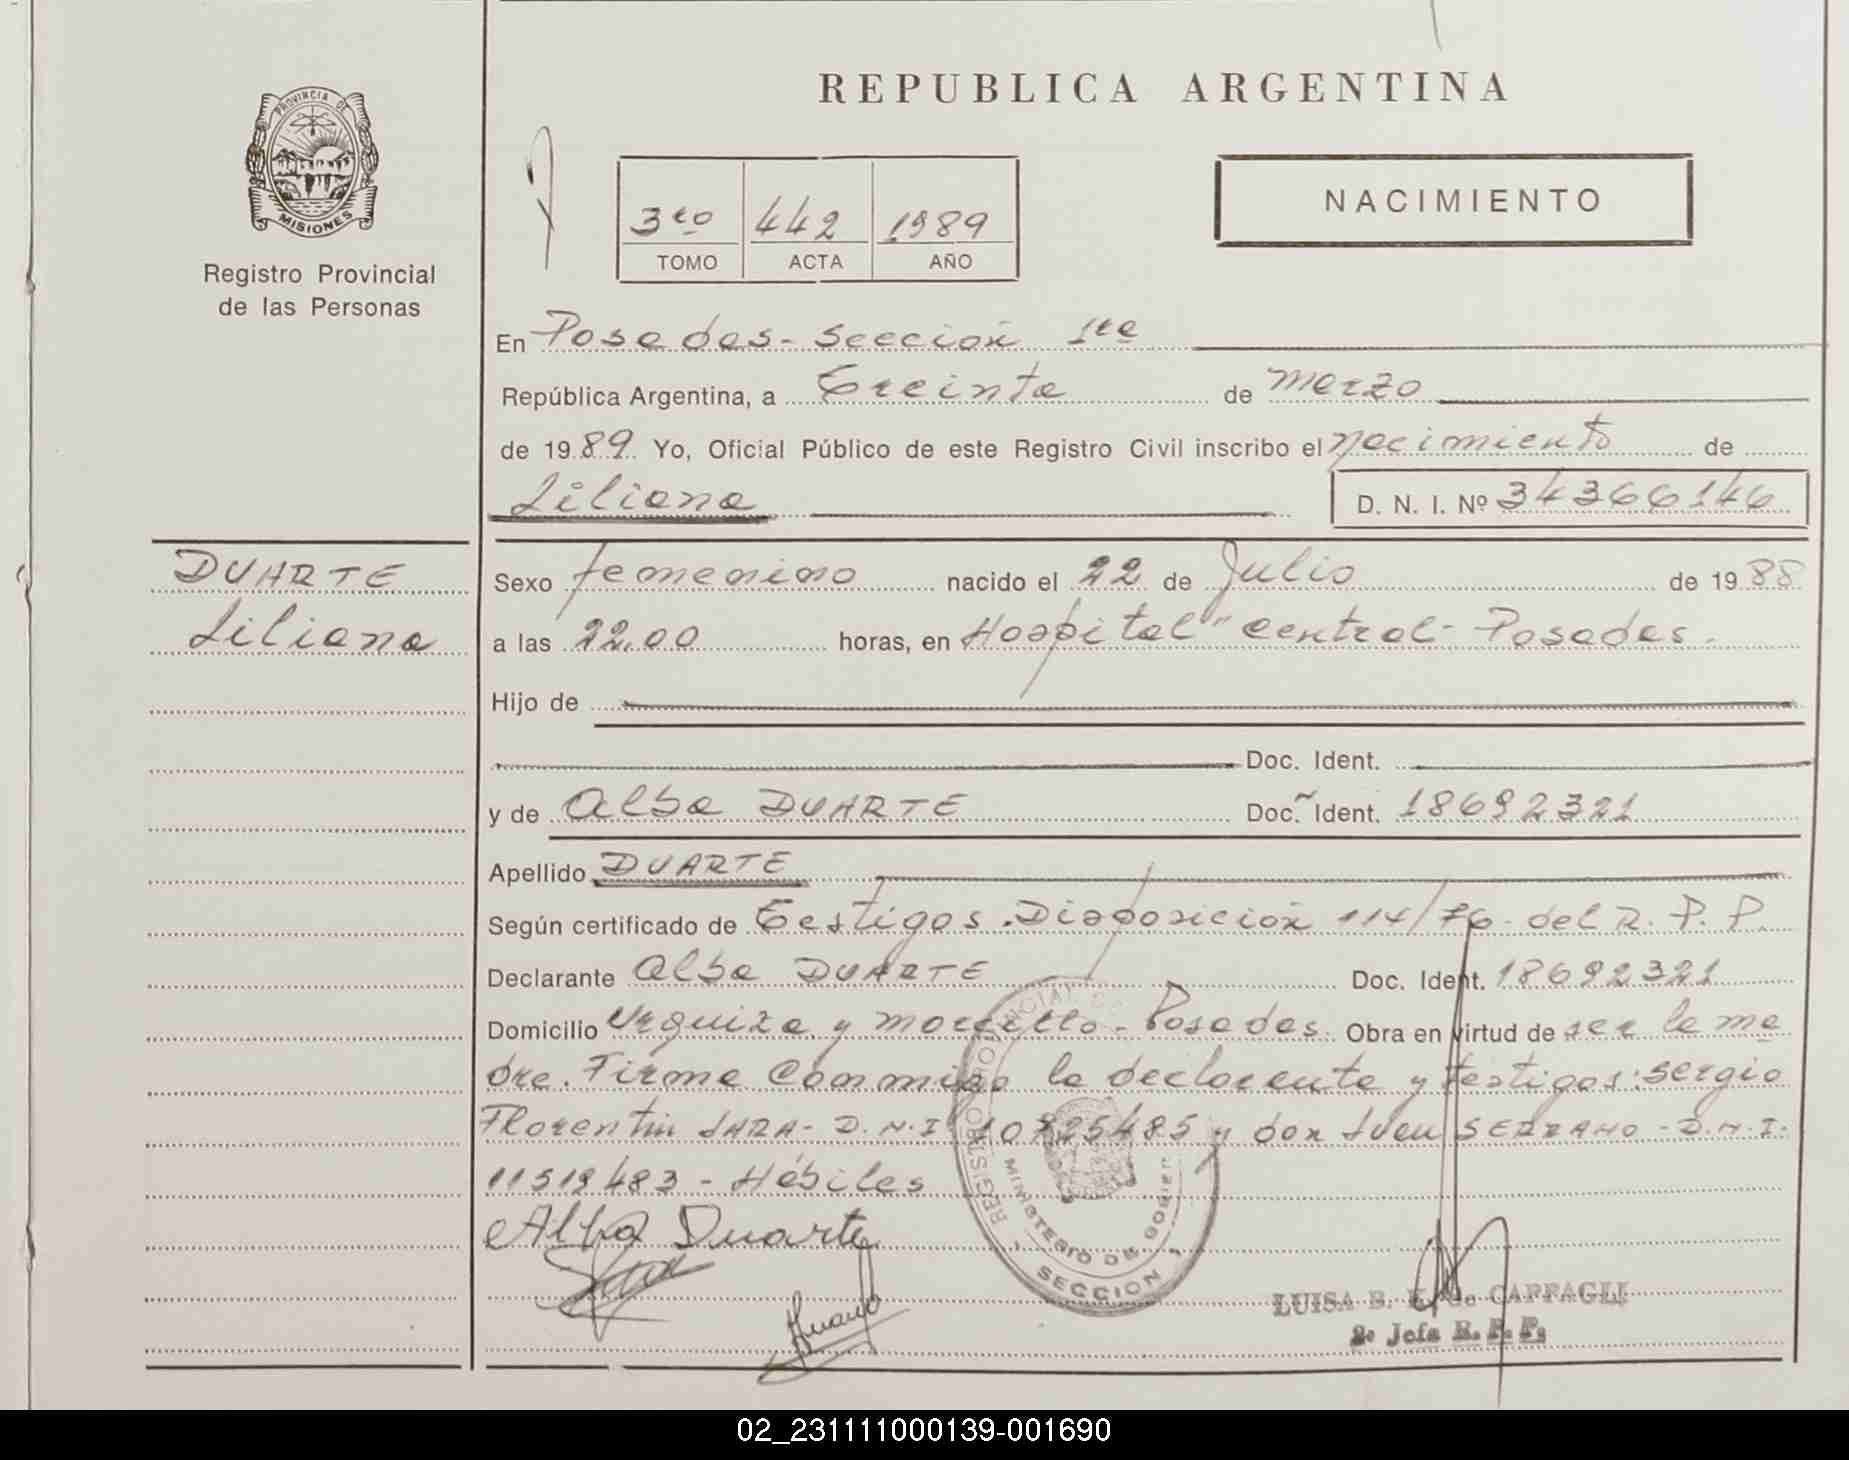 PROVINCIA DE
MISIONES
Registro Provincial
de las Personas
REPUBLICA ARGENTINA
3ro 442 1989
TOMO ACTA AÑO
NACIMIENTO
En Posadas - Sección 1ra
República Argentina, a Treinta de marzo
de 1989. Yo, Oficial Público de este Registro Civil inscribo el nacimiento de
Liliana D. N. I. Nº 34366146
DUARTE
Liliana
Sexo femenino nacido el 22 de Julio de 1988
a las 22.00 horas, en Hospital "Central - Posadas.
Hijo de
Doc. Ident.
y de Alba DUARTE Doc. Ident. 18692321
Apellido DUARTE
Según certificado de Testigos. Disposición 114/76 - del R. P. P.
Declarante Alba DUARTE Doc. Ident. 18692321
Domicilio Urquiza y - Posadas. Obra en virtud de ser la ma
dre. Firma Conmigo la declarante y testigos: Sergio
Florentin JARA - D.N.I. y don Juan SERRANO - D.N.I.
11519483 - Hábiles
Alba Duarte
REGISTRO PROVINCIAL
MINISTERIO DE GOBIER
SECCION
LUISA B. de CAFFAGLI
2º Jefa R. P. P.
02_231111000139-001690